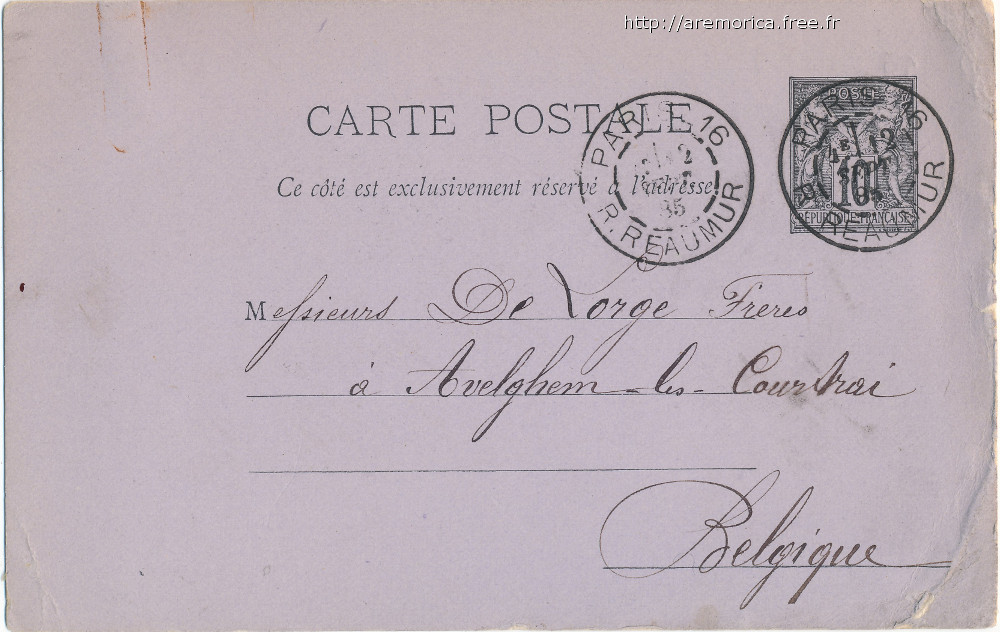 http://aremorica.free.fr
CARTE POSTALE
Ce côté est exclusivement réservé à l'adresse
PARIS 16
12
85
R. REAUMUR
POSTES
10
RÉPUBLIQUE FRANÇAISE
PARIS 16
12
SEPT
85
R. REAUMUR
Messieurs De Lorge Freres
à Avelghem-les-Courtrai
Belgique